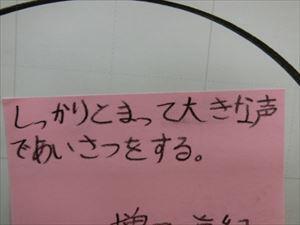 しっかりとまって大きな声
であいさつをする。